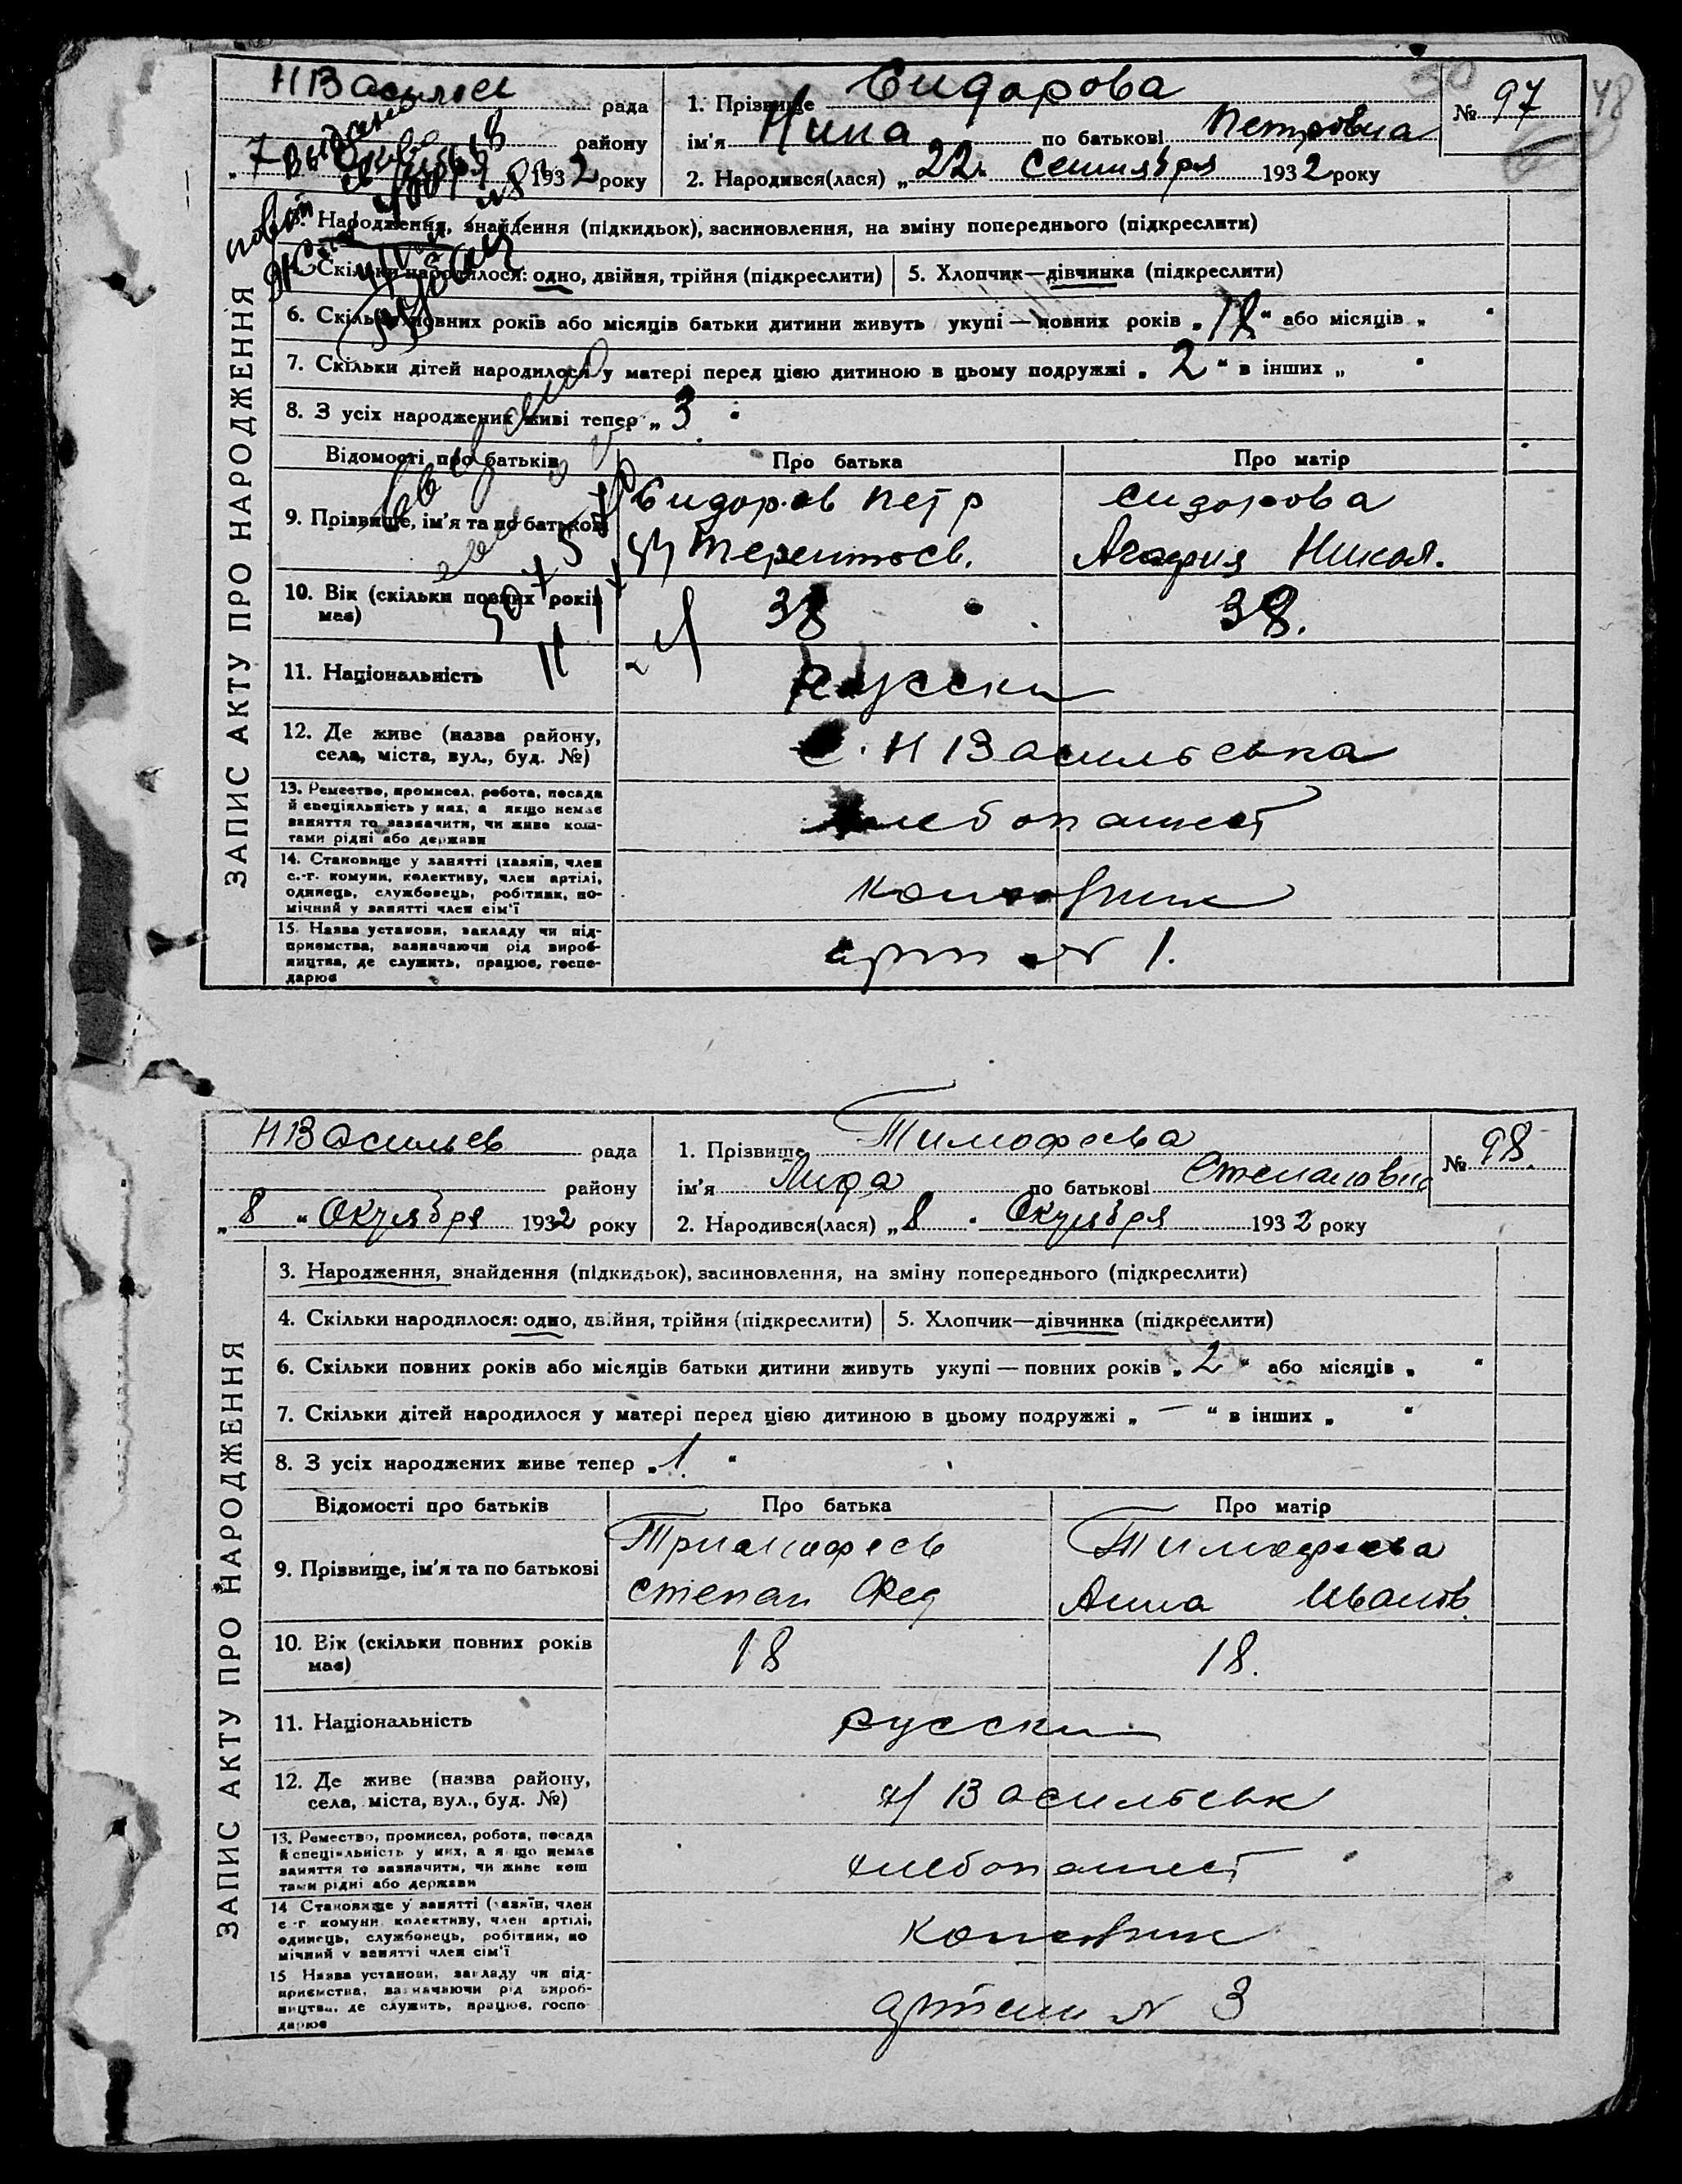 НВасильев рада
району
„7 1932 року
1. Прізвище Сидорова
ім'я Нина по батькові Петровна
2. Народився(лася) „22„ Сентября 1932 року
№ 97
48
ЗАПИС АКТУ ПРО НАРОДЖЕННЯ
3. Народження, знайдення (підкидьок), засиновлення, на зміну попереднього (підкреслити)
Скільки народилося: одно, двійня, трійня (підкреслити)
5. Хлопчик—дівчинка (підкреслити)
6. Скільки повних років або місяців батьки дитини живуть укупі — повних років „ “ або місяців „ “
7. Скільки дітей народилося у матері перед цією дитиною в цьому подружжі „2“ в інших „ “
8. З усіх народжених живі тепер „3“
Відомості про батьків Про батька Про матір
9. Прізвище, ім'я та по батькові
Сидоров Петр
Терентьев.
Сидорова
Агафия Никол.
10. Вік (скільки повних років
має)
38 38.
11. Національність русски
12. Де живе (назва району,
села, міста, вул., буд. №)
с. Н Васильевка
13. Ремество, промисел, робота, посада
й спеціяльність у них, а якщо немає
заняття то зазначити, чи живе кош-
тами рідні або держави
хлебопашест
14. Становище у занятті (хазяїн, член
с.-г. комуни, колективу, член артілі,
одинець, службовець, робітник, по-
мічний у занятті член сім'ї
15. Назва установи, закладу чи під-
приємства, зазначаючи рід вироб-
ництва, де служить, працює, госпо-
дарює
арт № 1.
НВасильев рада
району
„8“ Октября 1932 року
1. Прізвище Тимофеева
ім'я Лифа по батькові Степановна
2. Народився(лася) „8“ Октября 1932 року
№ 98.
ЗАПИС АКТУ ПРО НАРОДЖЕННЯ
3. Народження, знайдення (підкидьок), засиновлення, на зміну попереднього (підкреслити)
4. Скільки народилося: одно, двійня, трійня (підкреслити)
5. Хлопчик—дівчинка (підкреслити)
6. Скільки повних років або місяців батьки дитини живуть укупі — повних років „2“ або місяців „ “
7. Скільки дітей народилося у матері перед цією дитиною в цьому подружжі „—“ в інших „ “
8. З усіх народжених живе тепер „1“
Відомості про батьків Про батька Про матір
9. Прізвище, ім'я та по батькові
Тримофеев
Степан Фед
Тимофеева
Анна Иванов.
10. Вік (скільки повних років
має)
18 18.
11. Національність русски
12. Де живе (назва району,
села, міста, вул., буд. №)
н/Васильевк
13. Ремество, промисел, робота, посада
й спеціяльність у них, а якщо немає
заняття то зазначити, чи живе кош
тами рідні або держави
хлебопашест
14 Становище у занятті (хазяїн, член
с.-г комуни колективу, член артілі,
одинець, службовець, робітник, по
мічний у занятті член сім'ї
15 Назва установи, закладу чи під-
приємства, зазначаючи рід вироб-
ництва, де служить, працює, госпо-
дарює
артели № 3